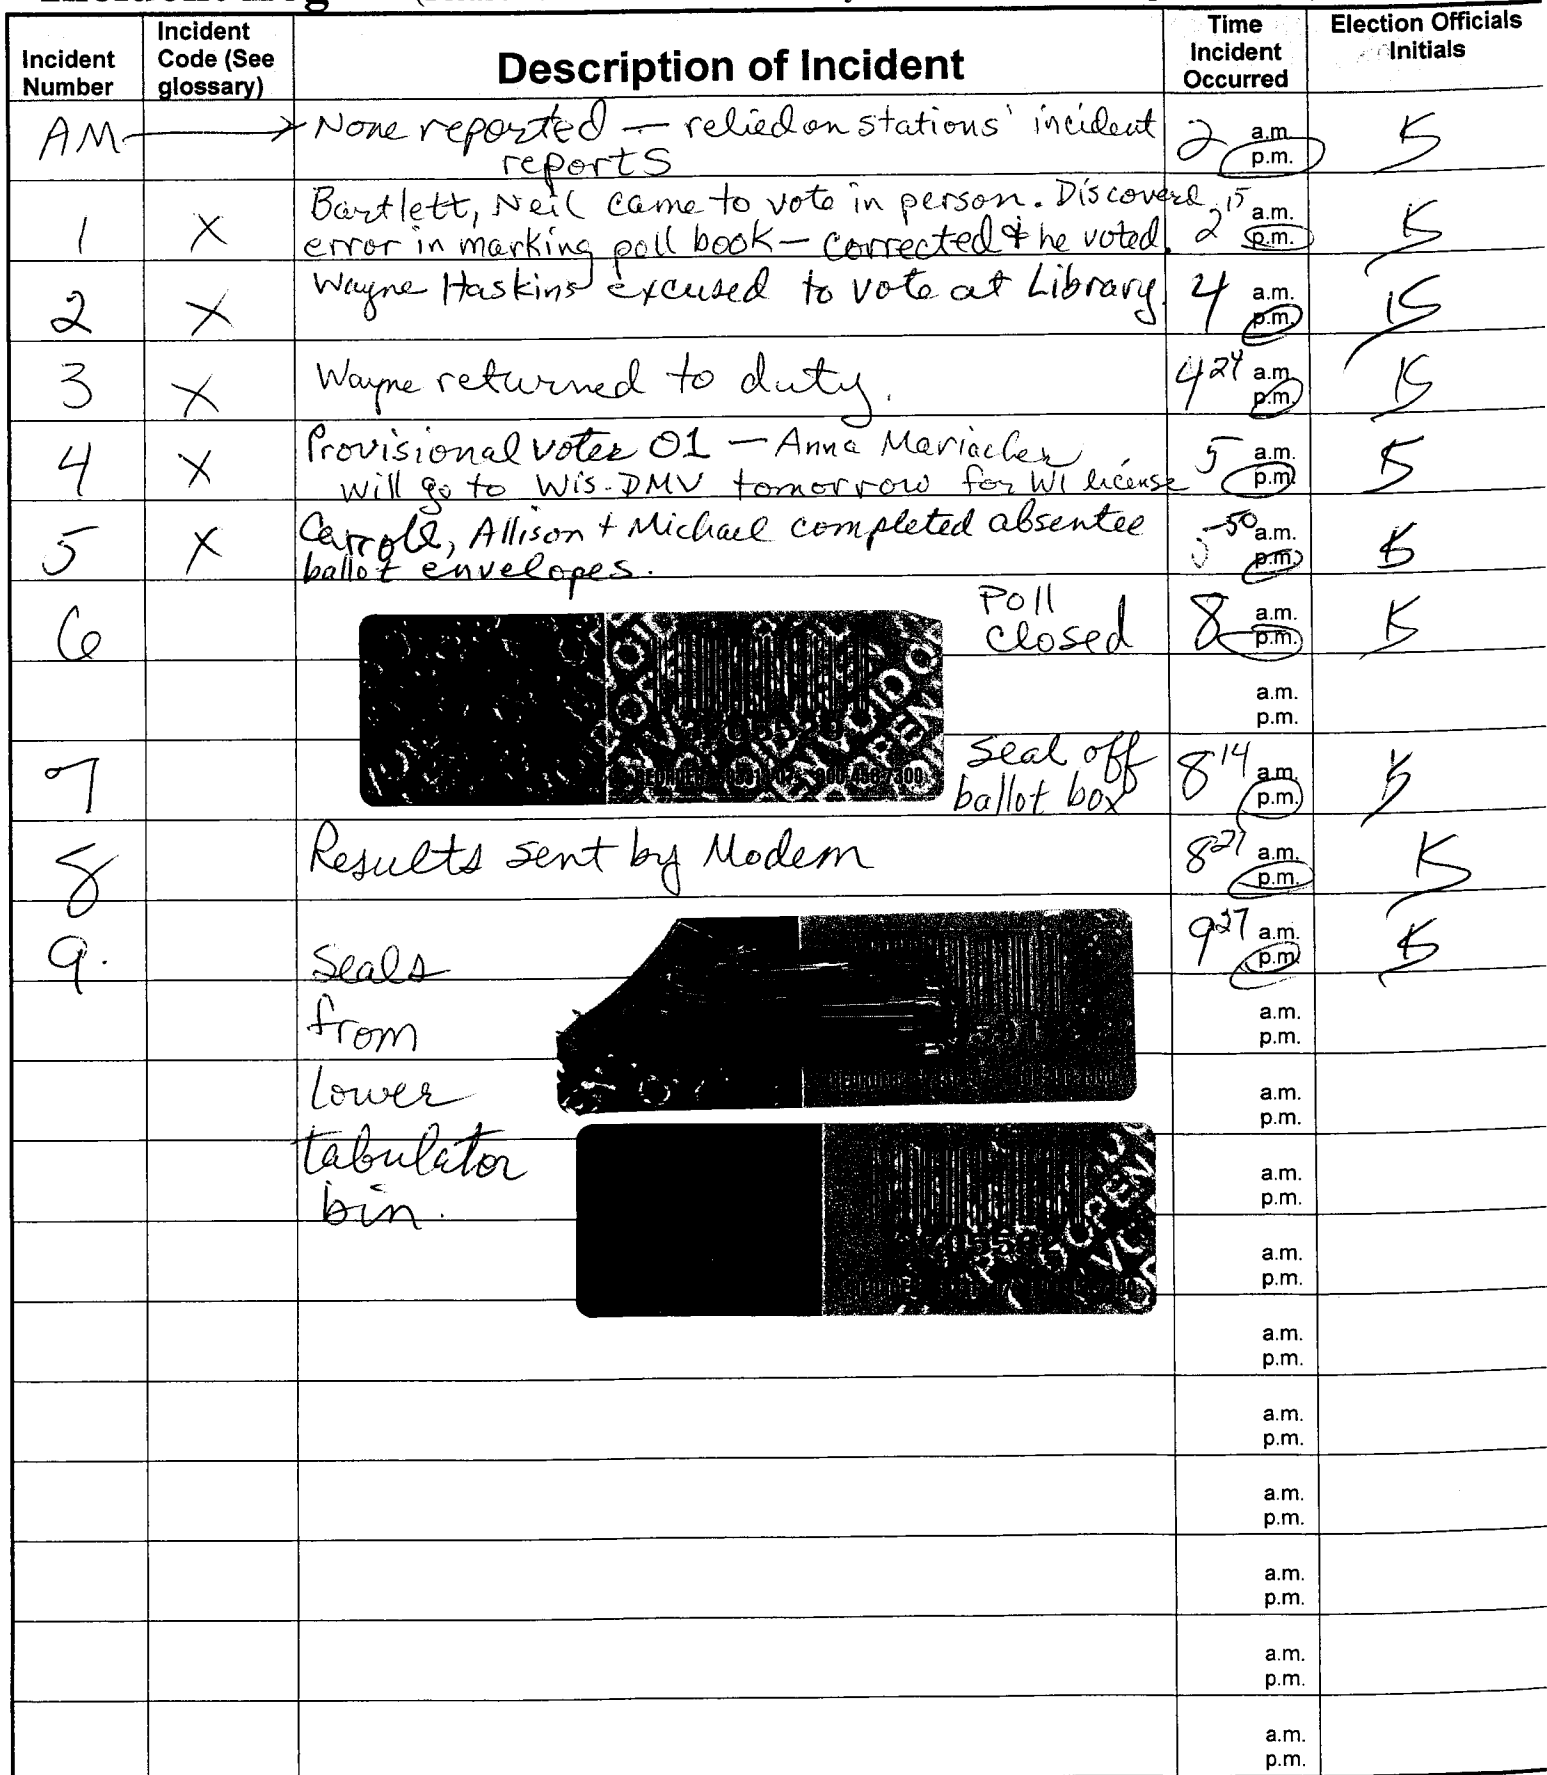 Incident
Number
Incident
Code (See
glossary)
Description of Incident
Time
Incident
Occurred
Election Officials
Initials
AM → None reported — relied on stations' incident
reports
2 a.m.
p.m.
1 X Bartlett, Neil came to vote in person. Discoverd
error in marking poll book — corrected & he voted.
2 15 a.m.
p.m.
2 X Wayne Haskins excused to vote at Library.
4 a.m.
p.m.
3 X Wayne returned to duty.
4 24 a.m.
p.m.
4 X Provisional voter 01 — Anna
will go to Wis. DMV tomorrow for WI license
5 a.m.
p.m.
5 X Carroll, Allison + Michael completed absentee
ballot envelopes.
5 50 a.m.
p.m.
6 Poll
closed
8 a.m.
p.m.
a.m.
p.m.
7 Seal off
ballot box
8 14 a.m.
p.m.
8 Results sent by Modem
8 27 a.m.
p.m.
9. Seals
from
Lower
tabulator
bin.
9 27 a.m.
p.m.
a.m.
p.m.
a.m.
p.m.
a.m.
p.m.
a.m.
p.m.
a.m.
p.m.
a.m.
p.m.
a.m.
p.m.
a.m.
p.m.
a.m.
p.m.
a.m.
p.m.